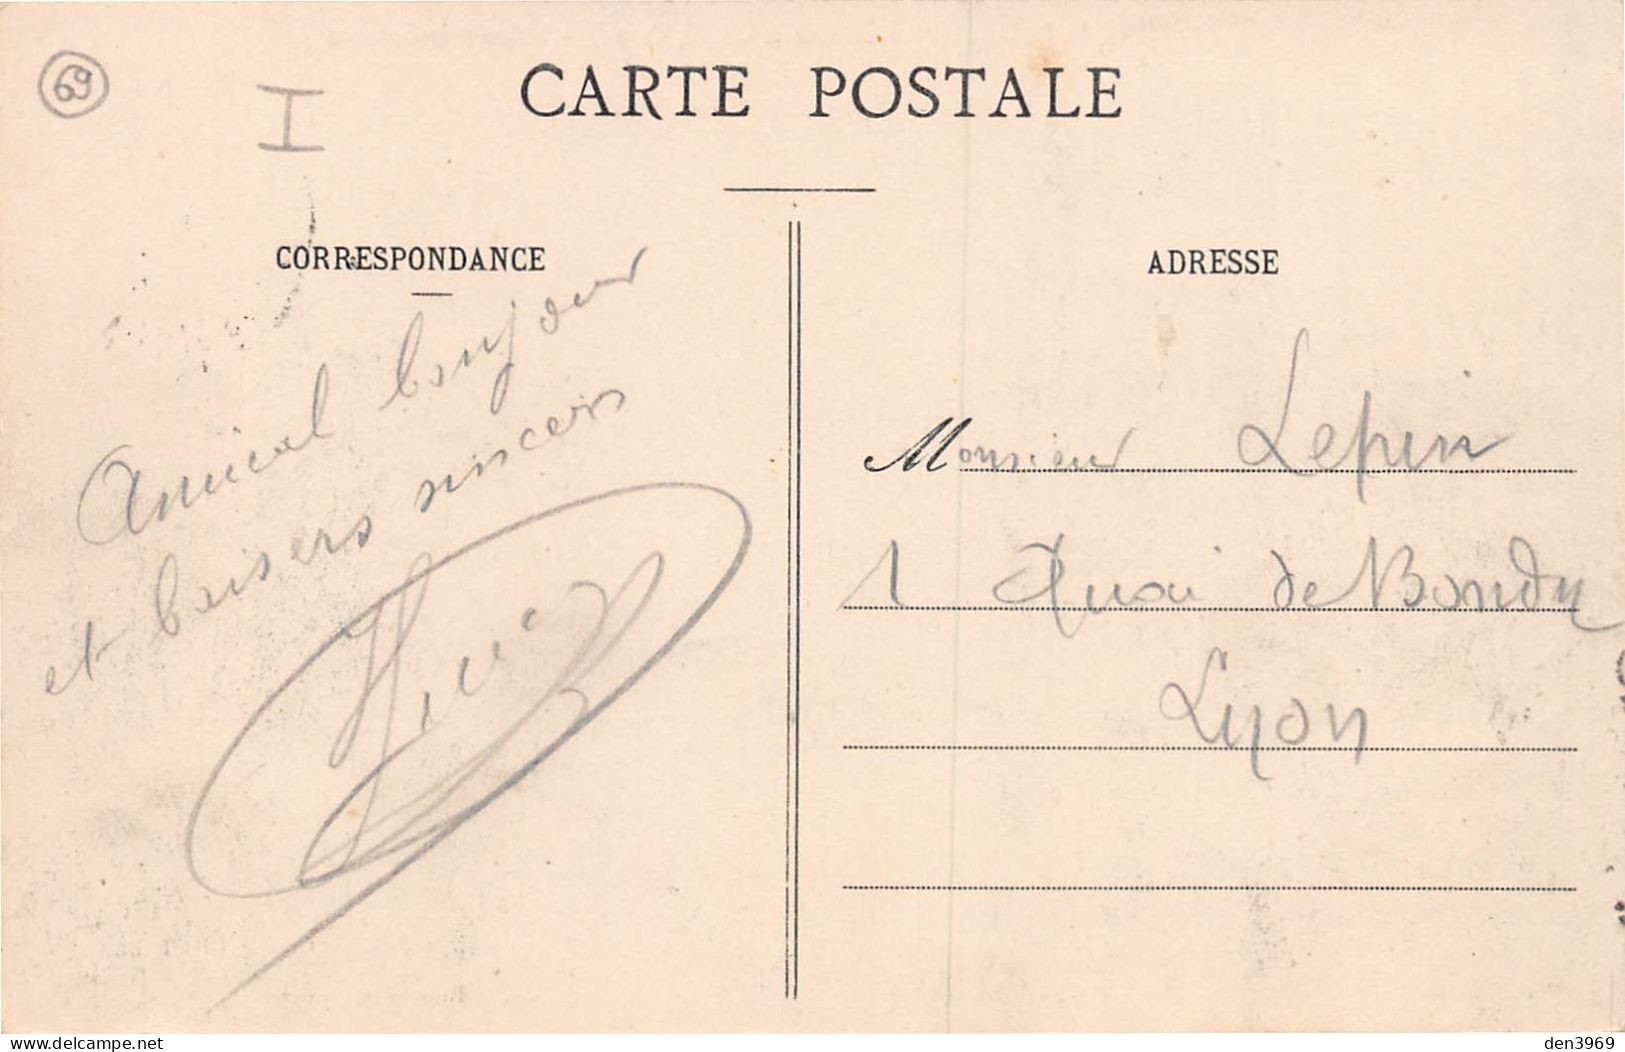 69
I
CARTE POSTALE
CORRESPONDANCE
Amical bonjour
et baisers sincers
ADRESSE
Monsieur Lepin
1 Quai de Bondy
Lyon
den3969